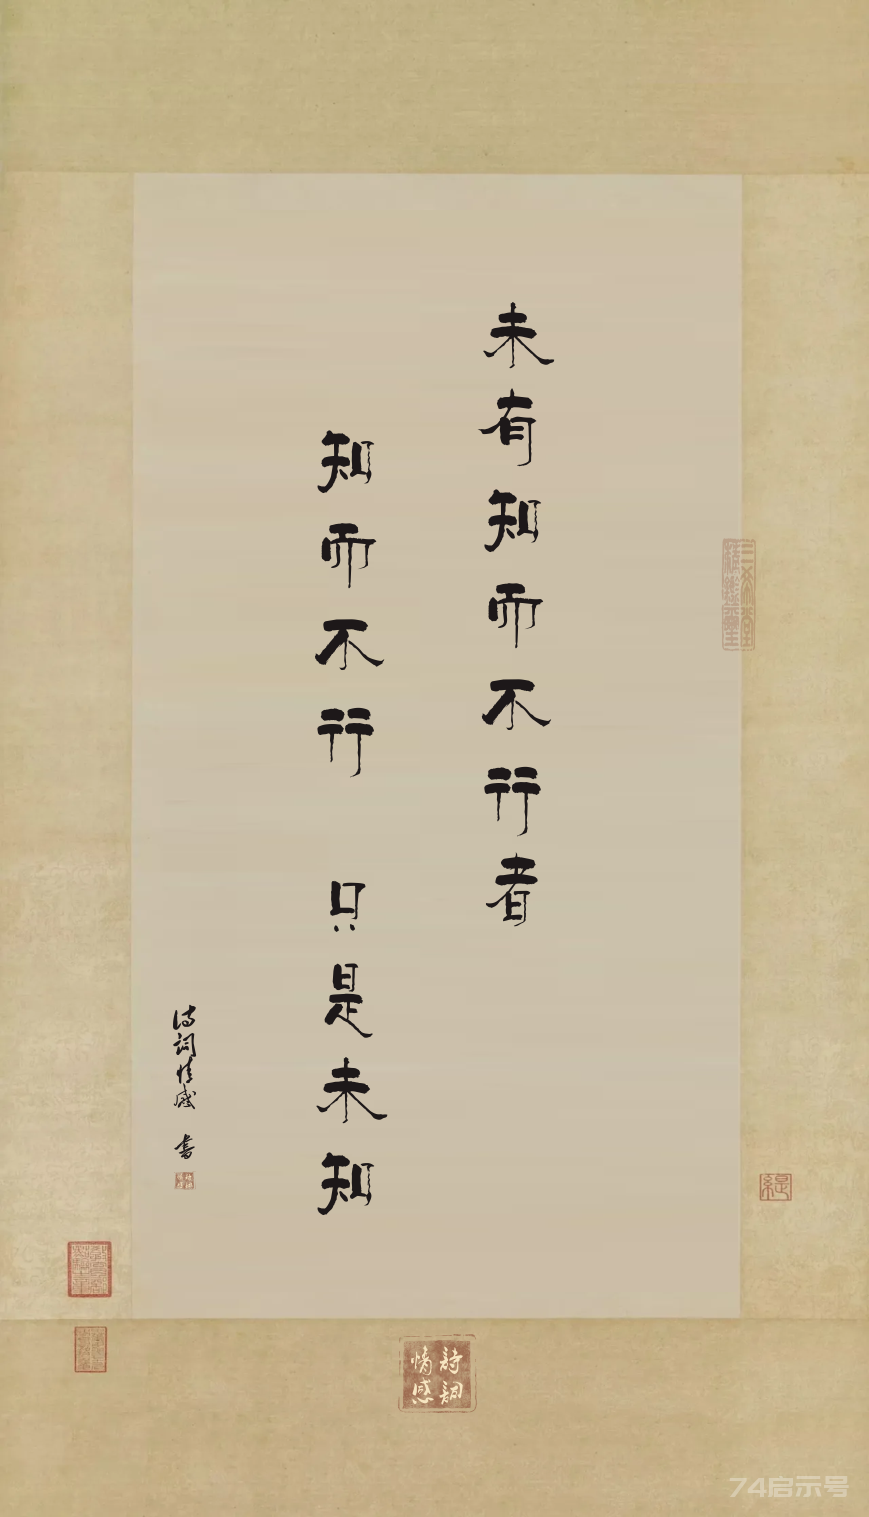 未有知而不行者
知而不行 只是未知
诗词情感 书
三希堂精鑑璽
緹
詩詞
情感
74启示号